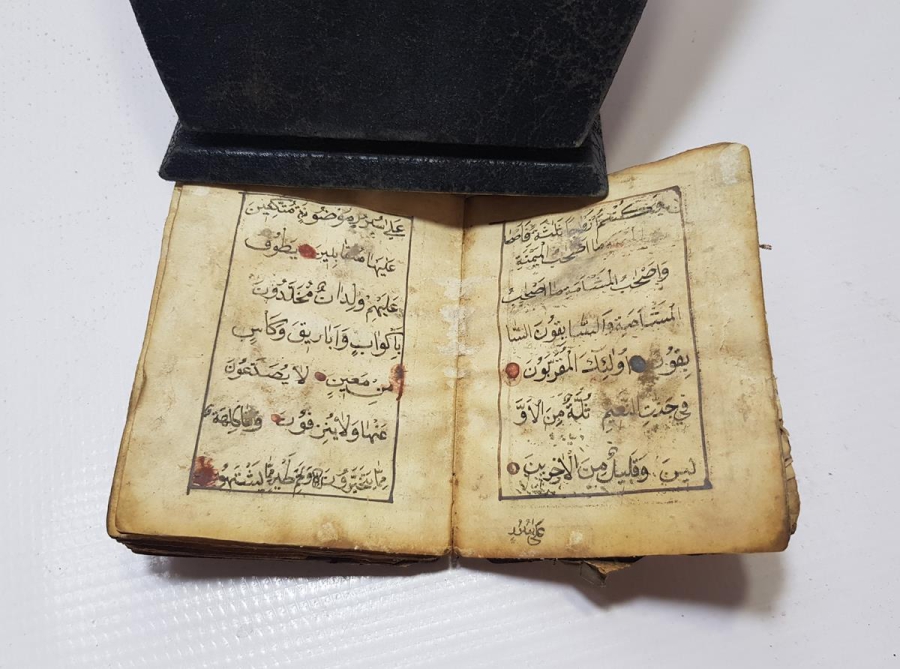 وَكُنْتُمْ أَزْوَاجًا ثَلٰثَةً فَاَصْحَا
مَا اَصْحٰبُ الْمَيْمَنَةِ
وَاَصْحَابُ الْمَشْأَمَةِ مَا اَصْحَابُ
الْمَشْأَمَةِ وَالسَّابِقُونَ السَّا
بِقُونَ اُولٰئِكَ الْمُقَرَّبُونَ
فِي جَنّٰتِ النَّعِيمِ ثُلَّةٌ مِنَ الْاَوَّ
لِينَ وَقَلِيلٌ مِنَ الْاٰخِرِينَ
عَلٰى سُرُرٍ
عَلٰى سُرُرٍ مَوْضُونَةٍ مُتَّكِئِينَ
عَلَيْهَا مُتَقَابِلِينَ يَطُوفُ
عَلَيْهِمْ وِلْدَانٌ مُخَلَّدُونَ
بِاَكْوَابٍ وَاَبَارِيقَ وَكَاْسٍ
مِنْ مَعِينٍ لَا يُصَدَّعُونَ
عَنْهَا وَلَا يُنْزِفُونَ وَفَاكِهَةٍ
مِمَّا يَتَخَيَّرُونَ وَلَحْمِ طَيْرٍ مِمَّا يَشْتَهُونَ